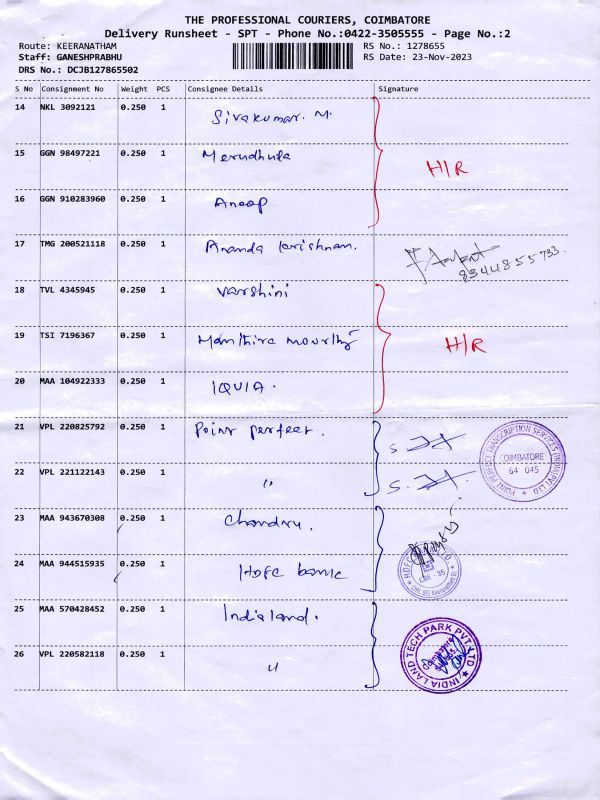 THE PROFESSIONAL COURIERS, COIMBATORE
Delivery Runsheet - SPT - Phone No.:0422-3505555 - Page No.:2
Route: KEERANATHAM RS No.: 1278655
Staff: GANESHPRABHU RS Date: 23-Nov-2023
DRS No.: DCJB127865502
S No Consignment No Weight PCS Consignee Details Signature
14 NKL 3092121 0.250 1 Sivakumar. M.
15 GGN 98497221 0.250 1 Merudhula H/R
16 GGN 910283960 0.250 1 Anoop
17 TMG 200521118 0.250 1 Ananda krishnan. 8344855733.
18 TVL 4345945 0.250 1 Varshini
19 TSI 7196367 0.250 1 Manthira moorthy H/R
20 MAA 104922333 0.250 1 IQVIA.
21 VPL 220825792 0.250 1 Point perfect.
POINT PERFECT TRANSCRIPTION SERVICES (INDIA) PVT LTD
COIMBATORE
64 045
22 VPL 221122143 0.250 1 "
23 MAA 943670308 0.250 1 Chandru.
24 MAA 944515935 0.250 1 HDFC bank
CBE - 35
25 MAA 570428452 0.250 1 Indialand.
INDIA LAND TECH PARK PVT LTD
26 VPL 220582118 0.250 1 "